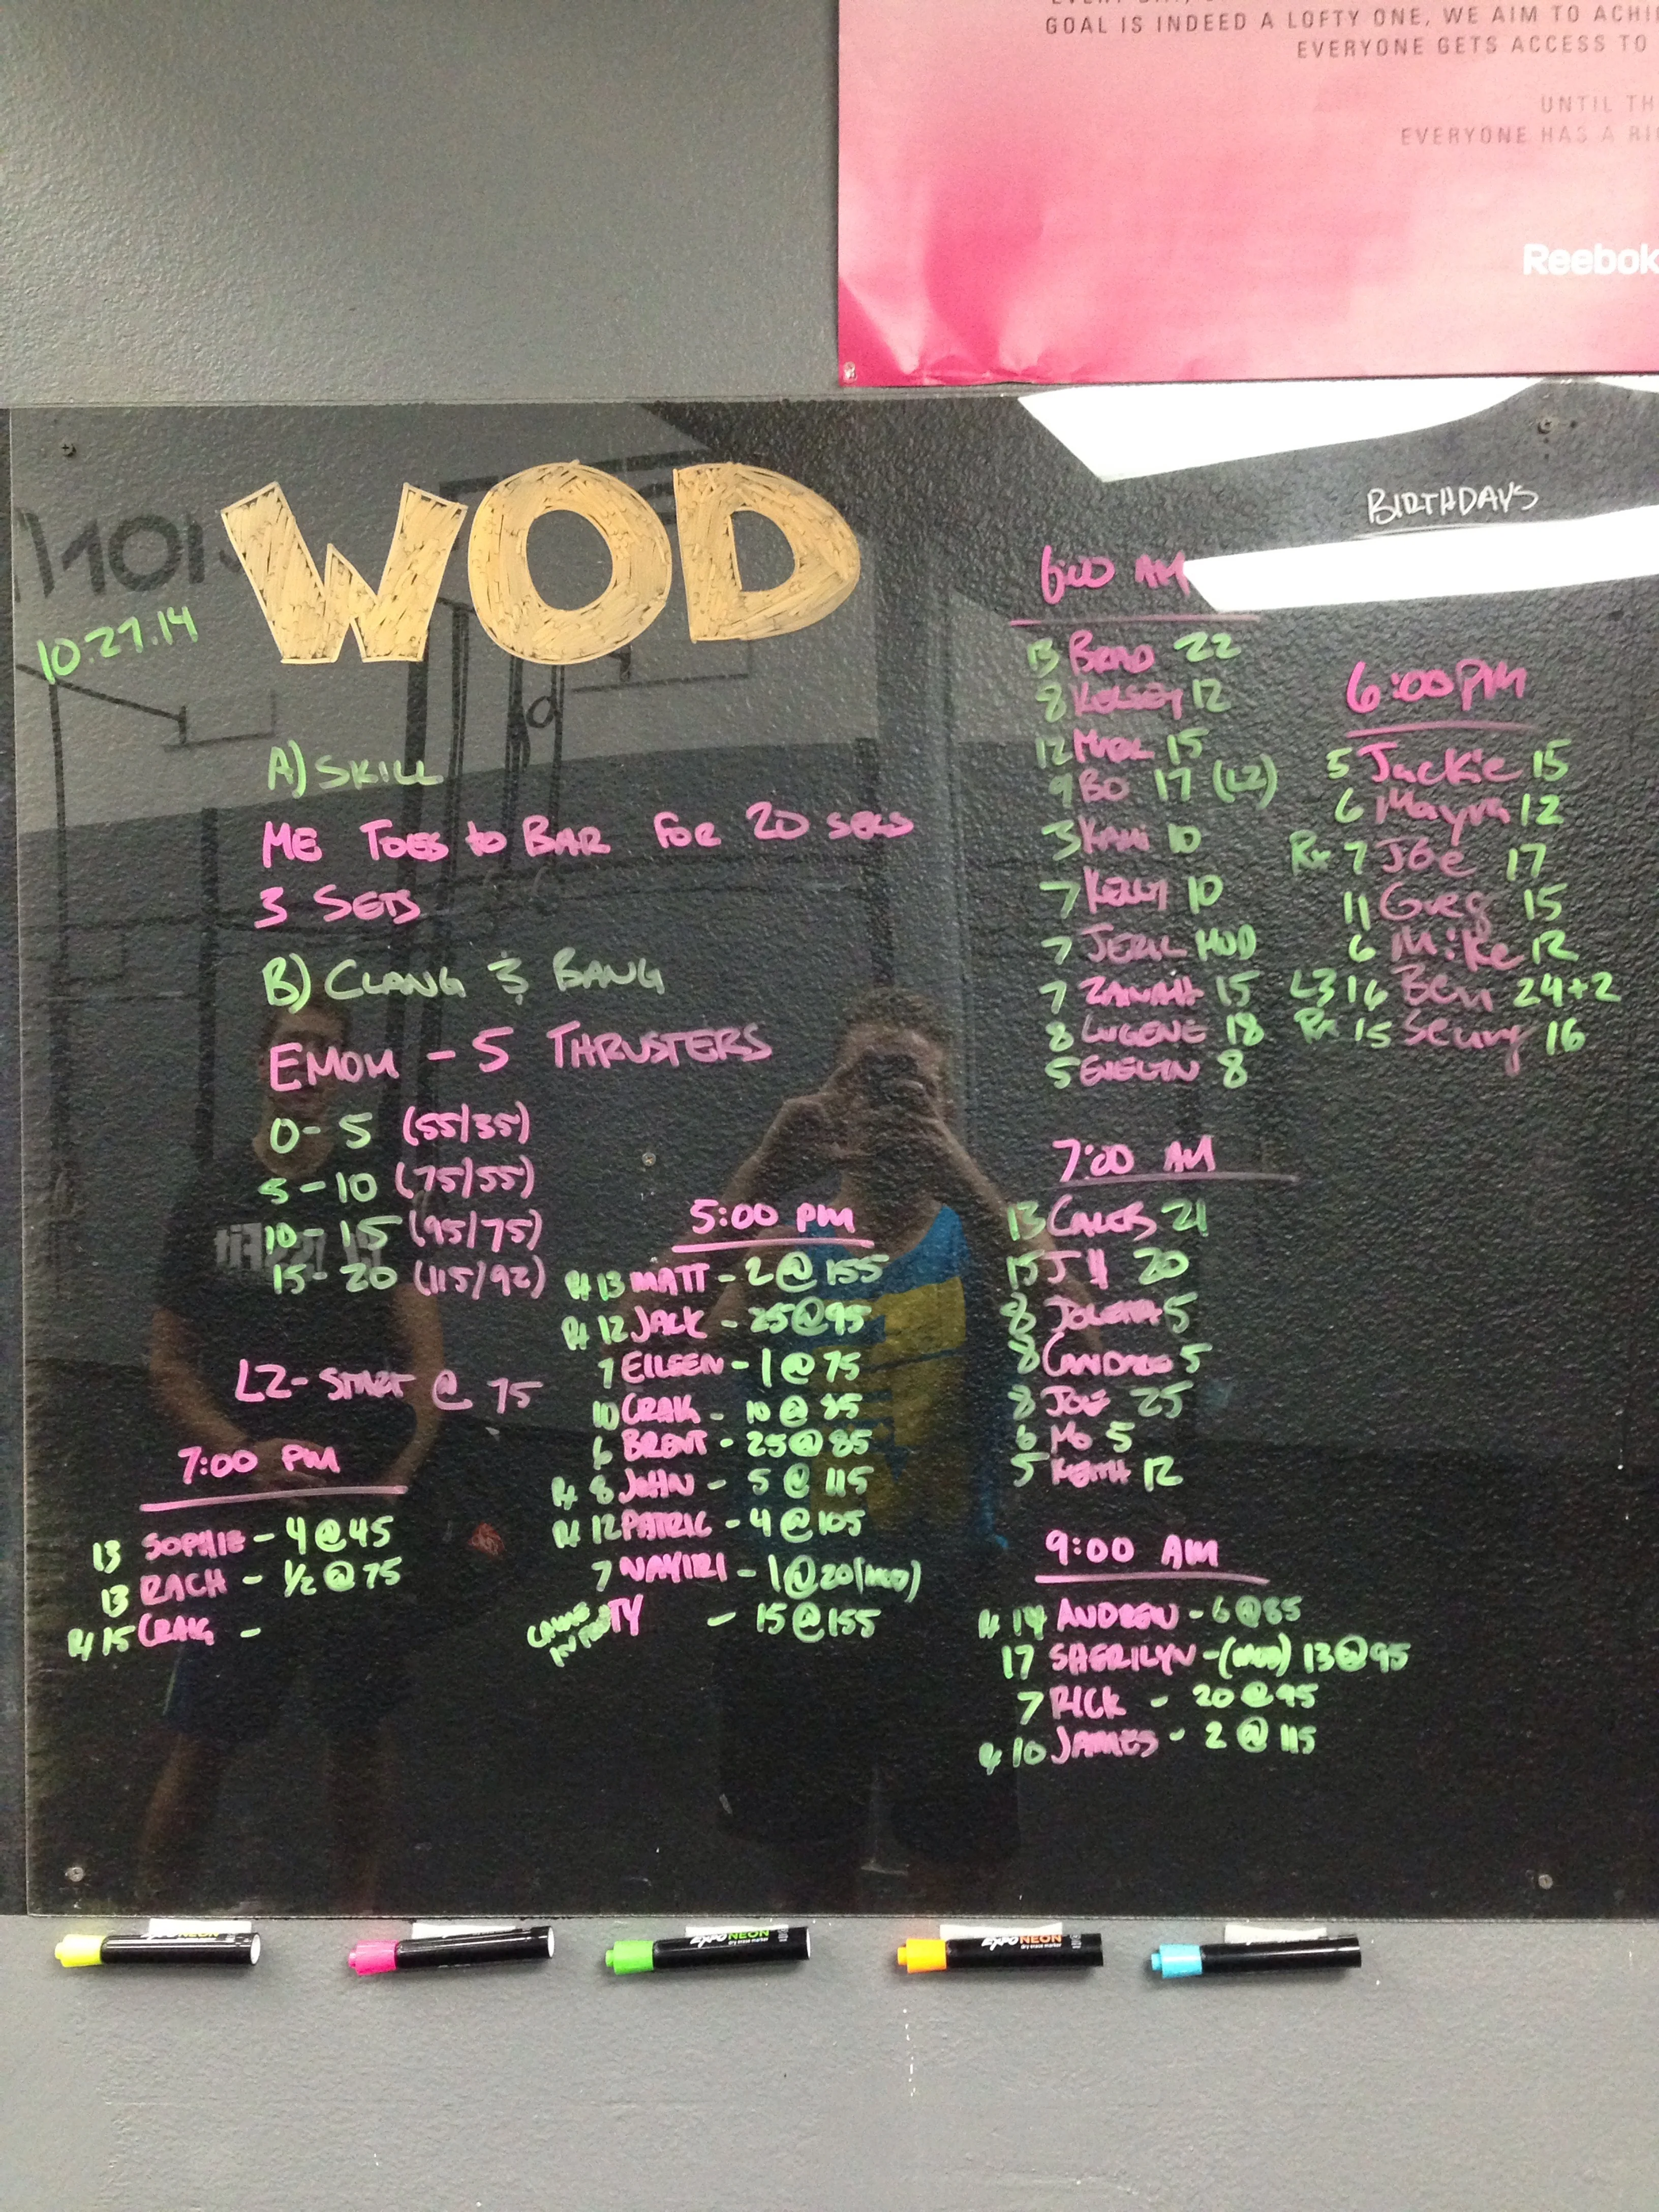 GOAL IS INDEED A LOFTY ONE, WE AIM TO ACHI
EVERYONE GETS ACCESS TO
UNTIL TH
EVERYONE HAS A RI
Reebok
WOD
10.27.14
A) SKILL
ME TOES to BAR FOR 20 SECS
3 SETS
B) CLANG & BANG
EMOM - 5 THRUSTERS
0-5 (55/35)
5-10 (75/55)
10-15 (95/75)
15-20 (115/92)
L2- START @ 75
7:00 PM
13 SOPHIE - 4@45
13 RACH - 1/2@75
Rx 15 CRAIG -
5:00 PM
Rx 13 MATT - 2@155
Rx 12 JACK - 25@95
7 EILEEN - 1@75
10 CRAIG - 10@85
6 BRENT - 25@85
Rx 8 JOHN - 5@115
Rx 12 PATRIC - 4@105
7 NAYIRI - 1@20(MOD)
TY - 15@155
BIRTHDAYS
6:00 AM
13 BRAD 22
8 KELSEY 12
12 15
9 BO 17 (L2)
3 KAHI 10
7 KELLY 10
7 MOD
7 15
8 LUGENE 18
5 EVELYN 8
6:00PM
5 Jackie 15
6 Mayra 12
Rx 7 JOe 17
11 Greg 15
6 Mike 12
L3 16 Ben 24+2
Rx 15 Seung 16
7:00 AM
13 CALEB 21
15 JH 20
8 5
8 5
8 JOE 25
6 MO 5
5 KEITH 12
9:00 AM
Rx 14 ANDREW - 6@85
17 SHERILYN -(MOD) 13@95
7 RICK - 20@95
Rx 10 JAMES - 2@115
EXPO NEON
EXPO NEON